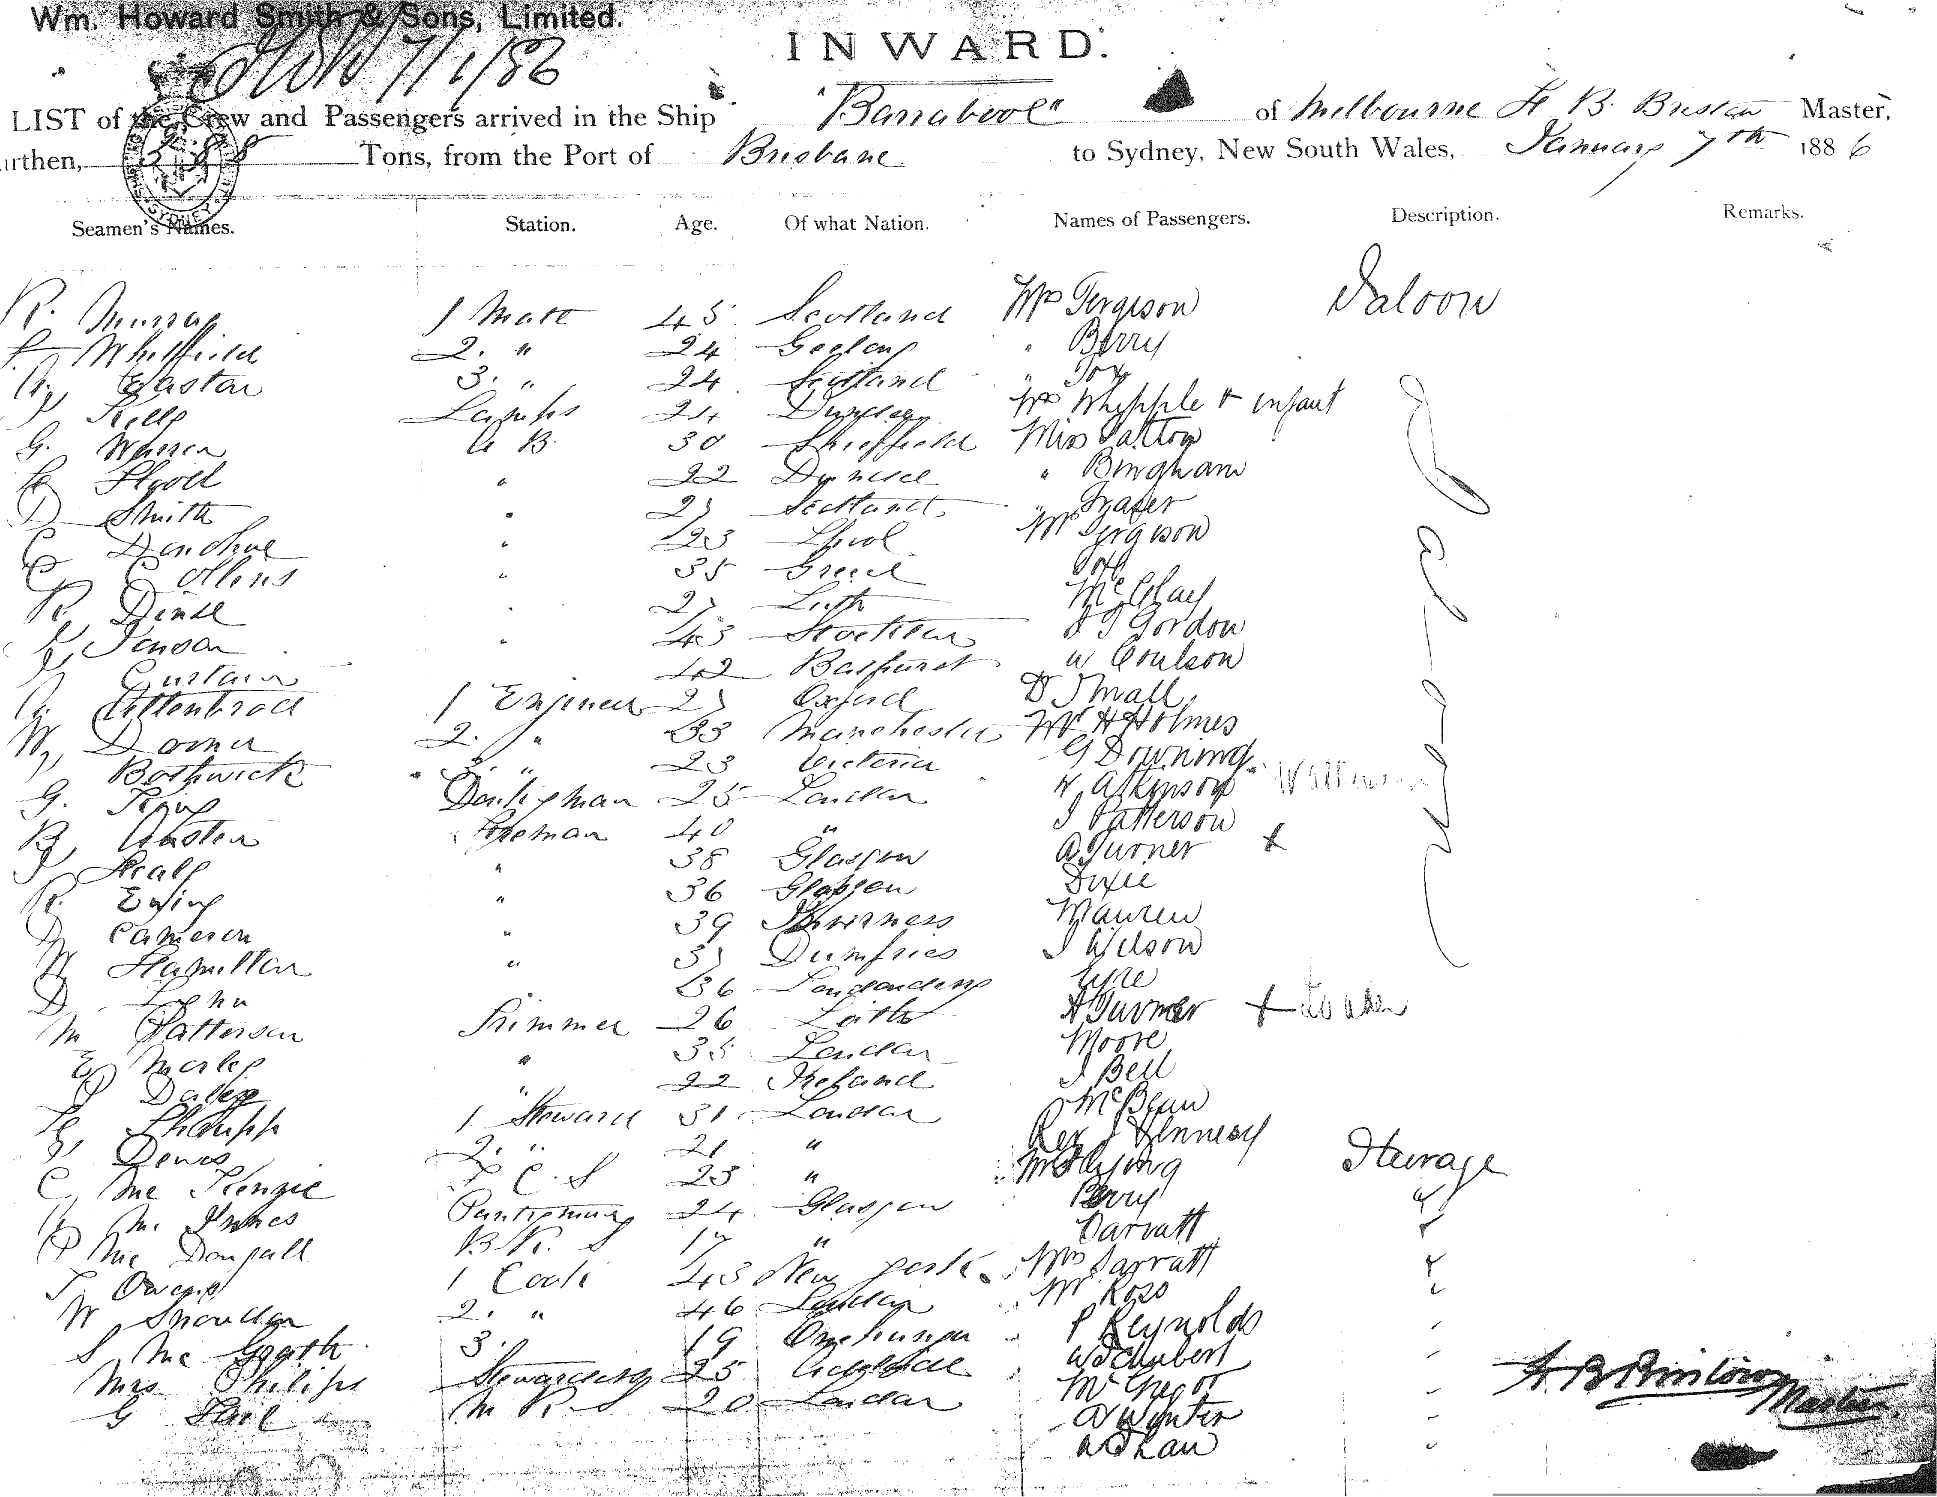 Wm. Howard Smith & Sons, Limited.
7/1/86
INWARD.
LIST of the Crew and Passengers arrived in the Ship "Barrabool" of Melbourne H B Bristow Master,
urthen, 388 Tons, from the Port of Brisbane to Sydney, New South Wales, January 7th 1886
Seamen's Names. Station. Age. Of what Nation. Names of Passengers. Description. Remarks.
R. Murray 1 Mate 45 Scotland Mrs Fergison Saloon
Whitfield 2. " 24 Geelong " Berry
Easton 3. " 24 Scotland " Fox
Kells Lamps 24 Dundee Mrs Whipple & infant
G. Warren A B 30 Sheffield Miss Patton
Hood " 22 Dundee " Bingham
D Smith " 27 Scotland " Frazer
C Donohue " 23 Lpool Mr Fergison
C Collins " 35 Greece Fox
R. Dinse " 27 Leith McClay
Jenson " 43 Stockton J T Gordon
Curtain 42 Bathurst W Coulson
Attenbrod 1 Engineer 27 Oxford D Small
W. Dorner 2. " 33 Manchester Mr H Holmes
Bothwick 3. " 23 Victoria G Downing
G. King Donkeyman 25 London W Atkinson
B Austen Fireman 40 " J Patterson
J Healy " 38 Glasgow A Turner +
R. Ewing " 36 Glasgow Dixie
D Cameron " 39 Inverness Mauren
W Hamilton " 37 Dumfries J Wilson
D " 36 Londonderry Eyre
M Patterson Trimmer 26 Leith A Turner +
E Morley " 35 London Moore
P Daley " 22 Ireland J Bell
Sharpp 1 Steward 31 London McBean
Dews 2. " 21 " Rev J Hennessy
C. Mc Kenzie F. C. S 23 " Steerage
Mc Innes Pantryman 24 Glasgow Berry
P Mc Dougall B. R. S 17 " Jarratt
T. Owens 1 Cook 43 New York Mrs Jarratt
W Snowdon 2. " 46 London Mr Ross
S Mc Grath 3. 19 Onehunga P Reynolds
Mrs Philips Stewardess 25 Adelaide W Schubert
G M R S 20 London McGregor
A Wynter
Law
Saloon
H. B Bristow
Master